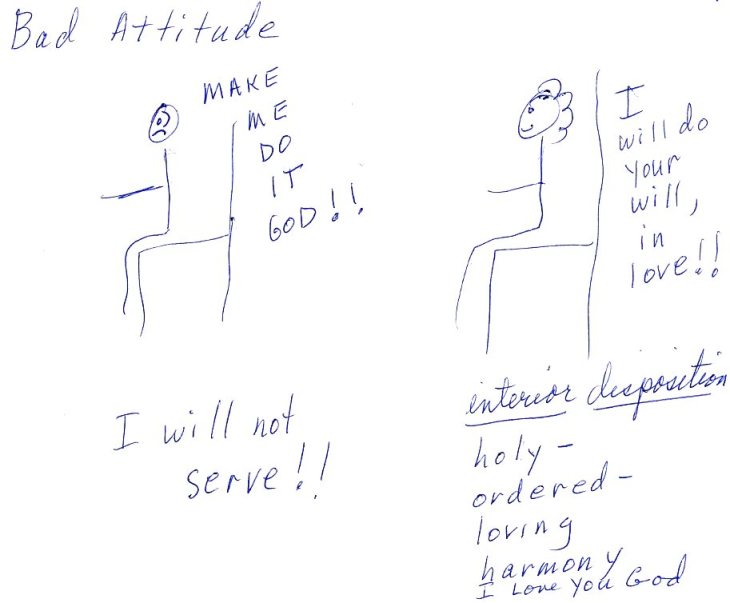 Bad Attitude
MAKE
ME
DO
IT
GOD!!
I
will do
your
will,
in
love!!
I will not
serve!!
interior disposition
holy -
ordered -
loving
harmony
I Love You God